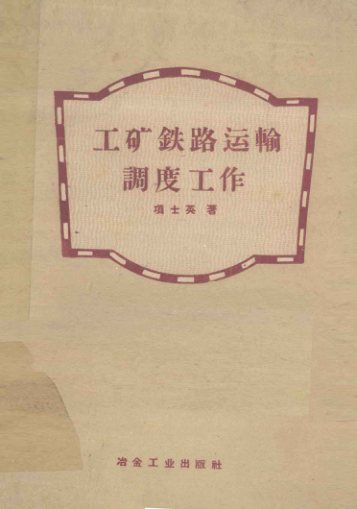 工矿鉄路运輸
調度工作
項士英 著
冶金工业出版社